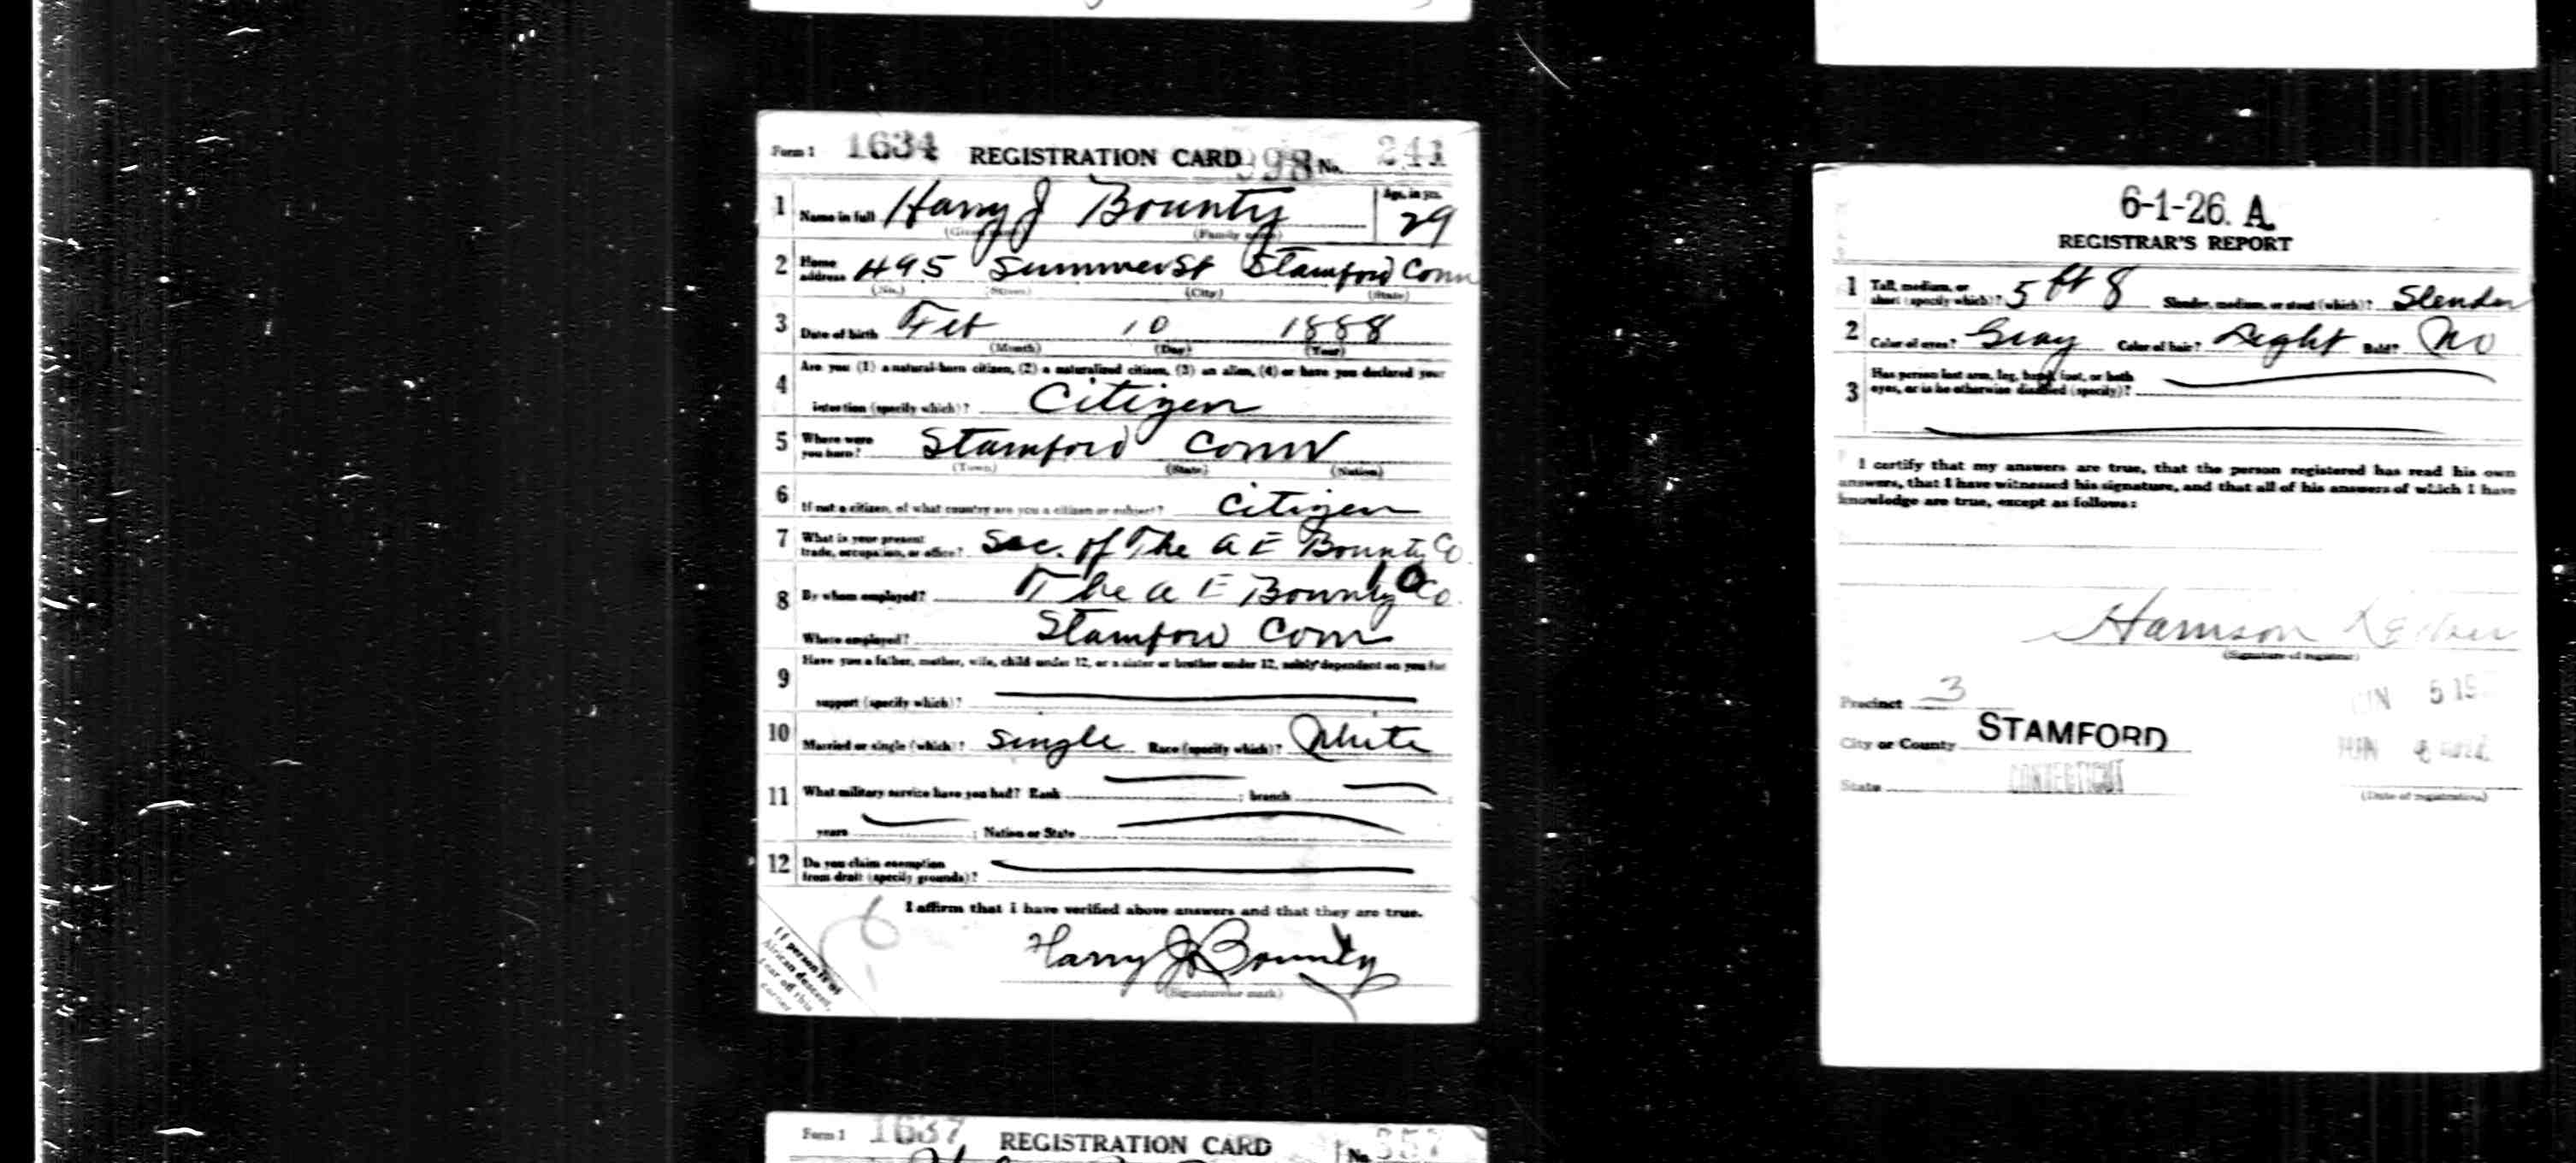 Form 1 1634 REGISTRATION CARD 998 No. 241
1 Name in full Harry J Bounty Age, in yrs. 29
(Given name) (Family name)
2 Home address 495 Summer St Stamford Conn
(No.) (Street) (City) (State)
3 Date of birth Feb 10 1888
(Month) (Day) (Year)
Are you (1) a natural-born citizen, (2) a naturalized citizen, (3) an alien, (4) or have you declared your
4 intention (specify which)? Citizen
5 Where were you born? Stamford Conn
(Town) (State) (Nation)
6 If not a citizen, of what country are you a citizen or subject? Citizen
7 What is your present trade, occupation, or office? Sec. of The A E Bounty Co
8 By whom employed? The A E Bounty Co.
Where employed? Stamford Conn
Have you a father, mother, wife, child under 12, or a sister or brother under 12, solely dependent on you for
9 support (specify which)?
10 Married or single (which)? Single Race (specify which)? White
11 What military service have you had? Rank ; branch ;
years ; Nation or State
12 Do you claim exemption from draft (specify grounds)?
I affirm that I have verified above answers and that they are true.
Harry J Bounty
(Signature or mark)
If person is of
African descent,
tear off this
corner
6-1-26. A.
REGISTRAR'S REPORT
1 Tall, medium, or short (specify which)? 5 ft 8 Slender, medium, or stout (which)? Slender
2 Color of eyes? Gray Color of hair? Light Bald? No
3 Has person lost arm, leg, hand, foot, or both
eyes, or is he otherwise disabled (specify)?
I certify that my answers are true, that the person registered has read his own
answers, that I have witnessed his signature, and that all of his answers of which I have
knowledge are true, except as follows:
Harrison
(Signature of registrar)
Precinct 3
City or County STAMFORD
State CONNECTICUT
(Date of registration)
Form 1 1637 REGISTRATION CARD No. 357